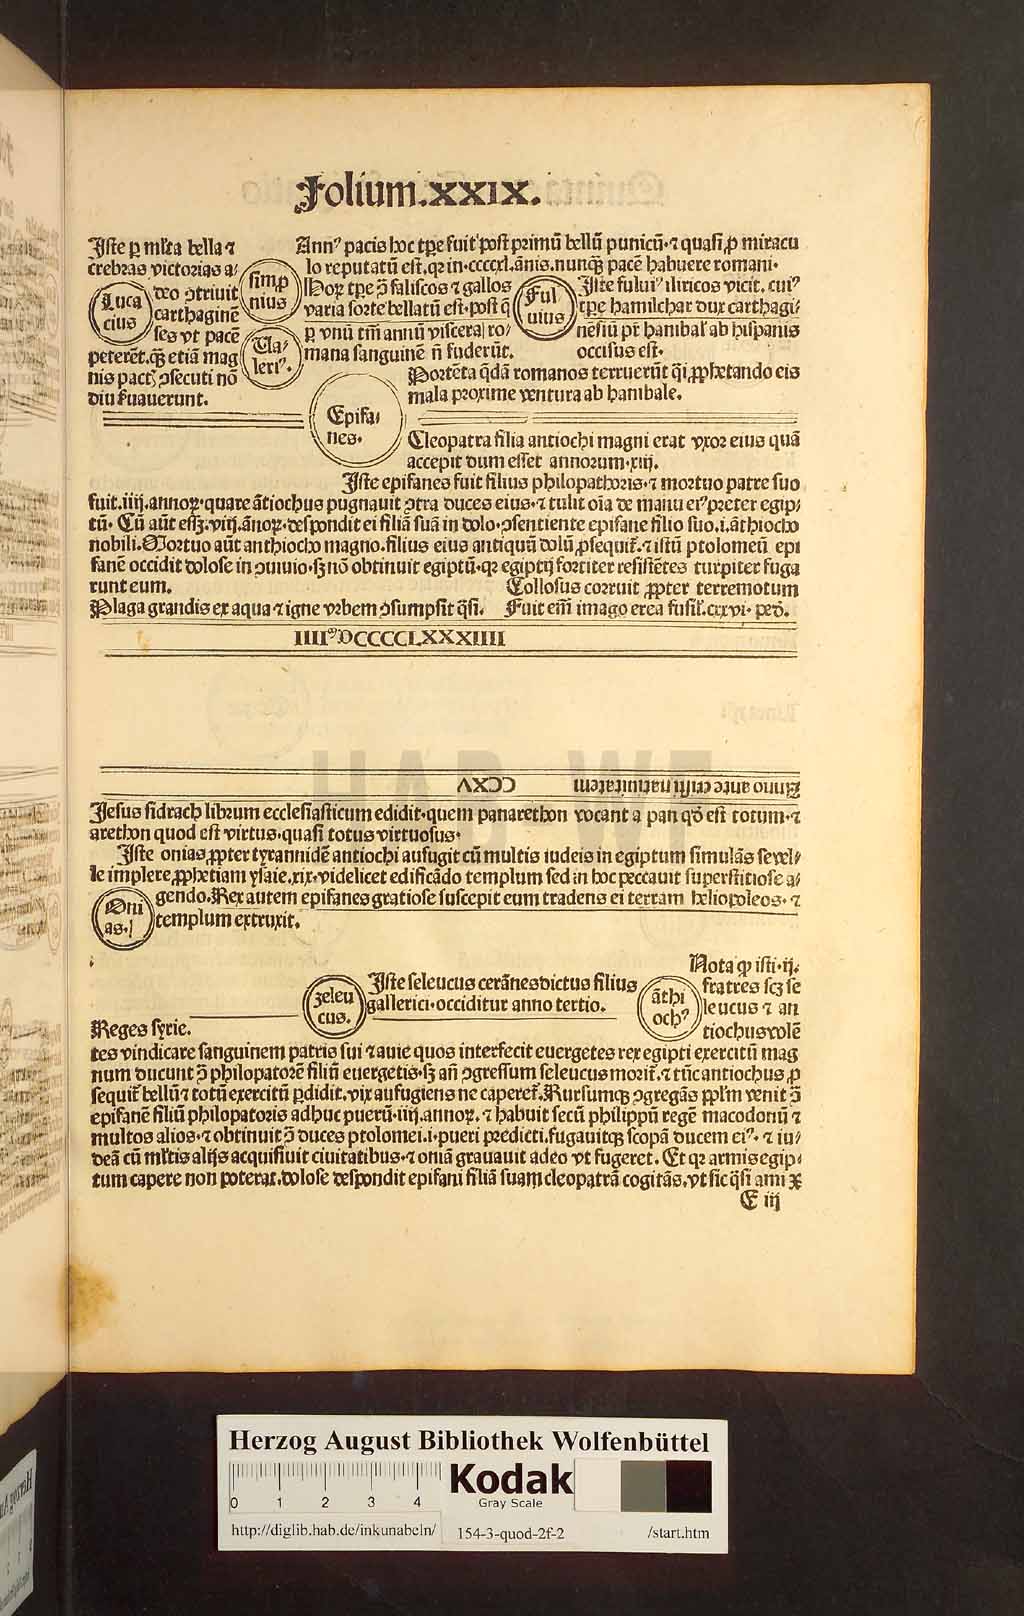 Folium.XXIX.
Iste ꝑ ml'ta bella ⁊
crebras victorias a/
deo ↄtriuit
carthaginē
ses vt pacē
peterēt.qꝫ etiā mag
nis pactꝭ ↄsecuti nō
diu ẜuauerunt.
Luca
cius
simp
nius
Ua/
leri⁹.
Ann⁹ pacis hoc tꝑe fuit post primū bellū punicū·⁊ quasi ꝓ miracu
lo reputatū est.qꝛ in·ccccxl.ānis.nunqꝫ pacē habuere romani·
Hoꝝ tꝑe ↄ̄ faliscos ⁊ gallos
varia sorte bellatū est·post q̄
ꝑ vnū tm̄ annū viscera ro/
mana sanguinē n̄ fuderūt.
Ful
uius
Iste fului⁹ iliricos vicit. cui⁹
tꝑe hamilchar dux carthagi/
nēsiū pr̄ hanibal' ab hispanis
occisus est·
Portēta q̄dā romanos terruerūt q̄i ꝓphetando eis
mala proxime ventura ab hanibale.
Epifa/
nes·
Cleopatra filia antiochi magni erat vxor eius quā
accepit dum esset annorum·xiij.
Iste epifanes fuit filius philopathoris·⁊ mortuo patre suo
fuit.iiij.annoꝝ·quare ātiochus pugnauit ↄtra duces eius·⁊ tulit oīa de manu ei⁹ preter egip/
tū· Cū aūt essꝫ.viij.ānoꝝ·despondit ei filiā suā in dolo·ↄsentiente epifane filio suo.i.āthiocho
nobili.Mortuo aūt anthiocho magno.filius eius antiquū dolū ꝓsequit᷑.⁊ istū ptolomeū epi
fanē occidit dolose in ↄuiuio·sꝫ nō obtinuit egiptū·qꝛ egiptij fortiter resistētes turpiter fuga
runt eum.
Collosus corruit ꝓpter terremotum
Plaga grandis ex aqua ⁊ igne vrbem ↄsumpsit q̄si.
Fuit em̄ imago erea fusil'.cxxvi· pedū.
IIII⁹DCCCCLXXXIIII
Anno ante cristi natiuitatem CCXV
Jesus sidrach librum ecclesiasticum edidit·quem panarethon vocant a pan qđ est totum·⁊
arethon quod est virtus·quasi totus virtuosus·
Iste onias ꝓpter tyrannidē antiochi aufugit cū multis iudeis in egiptum simulās se vel/
le implere ꝓphetiam ysaie.xix·videlicet edificādo templum sed in hoc peccauit superstitiose a/
gendo.Rex autem epifanes gratiose suscepit eum tradens ei terram heliopoleos·⁊
templum extruxit.
Oni
as·
Reges syrie.
zeleu
cus.
Iste seleucus cerānes dictus filius
gallerici·occiditur anno tertio.
āthi
och⁹
Nota ꝙ isti·ij.
fratres scꝫ se
leucus ⁊ an
tiochus volē
tes vindicare sanguinem patris sui ⁊ auie quos interfecit euergetes rex egipti exercitū mag
num ducunt ↄ̄ philopatorē filiū euergetis·sꝫ an̄ ↄgressum seleucus morit᷑.⁊ tūc antiochus ꝓ
sequit᷑ bellū ⁊ totū exercitū ꝑdidit.vix aufugiens ne caperet᷑.Rursumqꝫ ↄgregās ppl'm venit ↄ̄
epifanē filiū philopatoris adhuc puerū·iiij.annoꝝ.⁊ habuit secū philippū regē macodonū ⁊
multos alios·⁊ obtinuit ↄ̄ duces ptolomei.i·pueri predicti.fugauitqꝫ scopā ducem ei⁹·⁊ iu/
deā cū ml'tis alijs acquisiuit ciuitatibus·⁊ oniā grauauit adeo vt fugeret. Et qꝛ armis egip/
tum capere non poterat.dolose despondit epifani filiā suam cleopatrā cogitās.vt sic q̄si
E iij
HAB-WF
Herzog August Bibliothek Wolfenbüttel
0 1 2 3 4
Kodak
Gray Scale
http://diglib.hab.de/inkunabeln/ 154-3-quod-2f-2 /start.htm